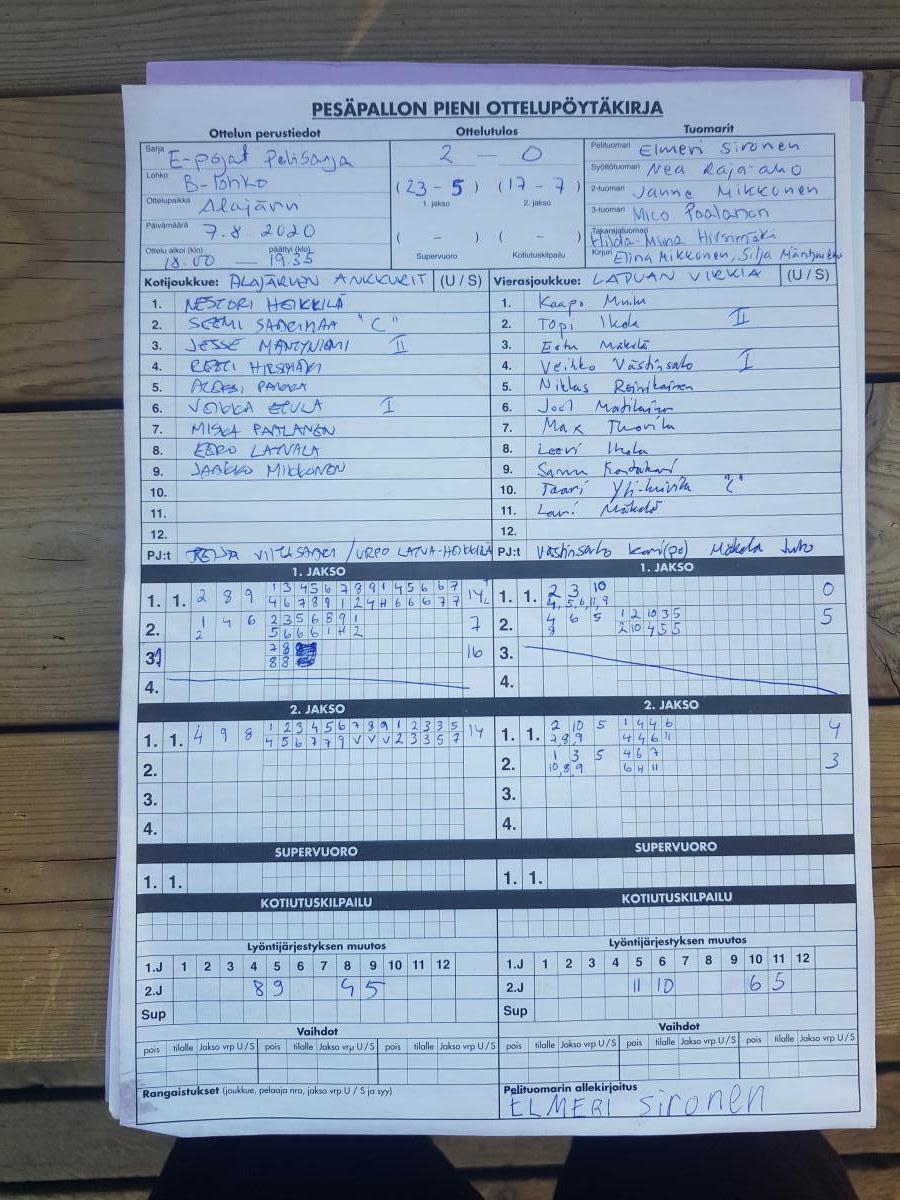 PESÄPALLON PIENI OTTELUPÖYTÄKIRJA
Ottelun perustiedot Ottelutulos Tuomarit
Sarja E-pojat Pelisarja 2 – 0 Pelituomari Elmeri Sironen
Lohko B-lohko Syöttötuomari Nea Raja-aho
Ottelupaikka Alajärvi (23 - 5) (17 - 7) 2-tuomari Janne Mikkonen
1. jakso 2. jakso 3-tuomari Mico Paalanen
Päivämäärä 7.8 2020 ( - ) ( - ) Takarajatuomari Hilda-Miina Hirsimäki
Ottelu alkoi (klo) 18.00 – päättyi (klo) 19.35 Supervuoro Kotiutuskilpailu Kirjuri Elina Mikkonen, Silja
Kotijoukkue: ALAJÄRVEN ANKKURIT (U / S) Vierasjoukkue: LAPUAN VIRKIÄ (U / S)
1. NESTORI HEIKKILÄ 1. Kaapo
2. SEEMI "C" 2. Topi Ikola II
3. JESSE MÄNTYNIEMI II 3. Eetu Mäkelä
4. HIRSIMÄKI 4. Veikko Västinsalo I
5. 5. Niklas Reinikainen
6. VEIKKA I 6. Joel
7. MISKA PAALANEN 7. Max
8. EERO LATVALA 8. Leevi Ikola
9. JAAKKO MIKKONEN 9.
10. 10. Taari "C"
11. 11. Lauri Mäkelä
12. 12.
PJ:t /URPO LATVA-HEIKKILÄ PJ:t Västinsalo Kari(po) Mäkelä Juho
1. JAKSO 1. JAKSO
1. 1. 2 8 9 14 1. 1. 2 3 10 0
2. 1 4 6 2 3 5 6 8 9 1 7 2. 4 6 5 1 2 10 3 5 5
2 5 6 6 6 1 H 2 8 2 10 4 5 5
3. 7 8 16 3.
8 8
4. 4.
2. JAKSO 2. JAKSO
1. 1. 4 9 8 1 2 3 4 5 6 7 8 9 1 2 3 3 5 14 1. 1. 2 10 5 1 4 4 6 4
4 5 6 7 7 9 V V V 2 3 3 5 7 7,8,9 4 4 6 11
2. 2. 1 3 5 4 6 7 3
10,8,9 6 H 11
3. 3.
4. 4.
SUPERVUORO SUPERVUORO
1. 1. 1. 1.
KOTIUTUSKILPAILU KOTIUTUSKILPAILU
Lyöntijärjestyksen muutos Lyöntijärjestyksen muutos
1.J 1 2 3 4 5 6 7 8 9 10 11 12 1.J 1 2 3 4 5 6 7 8 9 10 11 12
2.J 8 9 4 5 2.J 11 10 6 5
Sup Sup
Vaihdot Vaihdot
pois tilalle Jakso vrp U / S pois tilalle Jakso vrp U / S pois tilalle Jakso vrp U / S pois tilalle Jakso vrp U / S
Rangaistukset (joukkue, pelaaja nro, jakso vrp U / S ja syy) Pelituomarin allekirjoitus
ELMERI Sironen